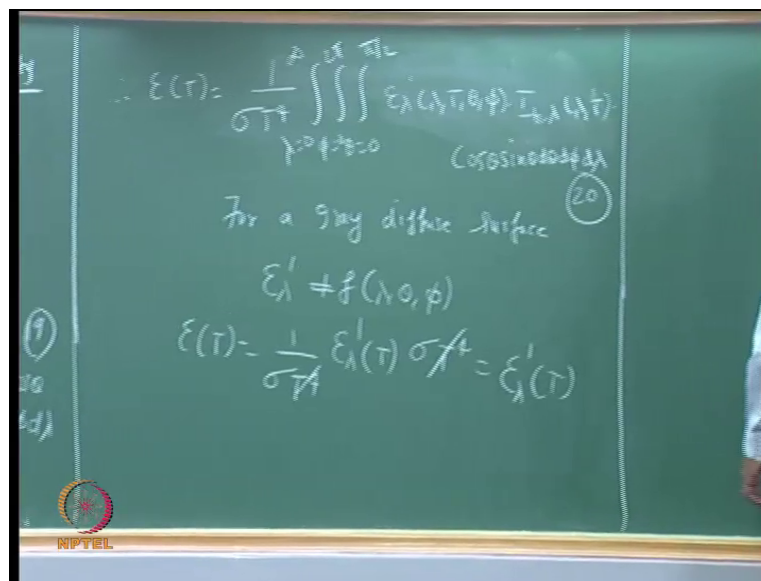 ∴ ε(T) = 1/σT⁴ ∫λ=0^∞ ∫φ=0^2π ∫θ=0^π/2 ελ'(λ,T,θ,φ). I_b,λ(λ,T).
cosθ sinθ dθ dφ dλ
(20)
For a gray diffuse surface
ελ' ≠ f(λ, θ, φ)
ε(T) = 1/σT⁴ ελ'(T) σT⁴ = ελ'(T)
(9)
dλ
NPTEL